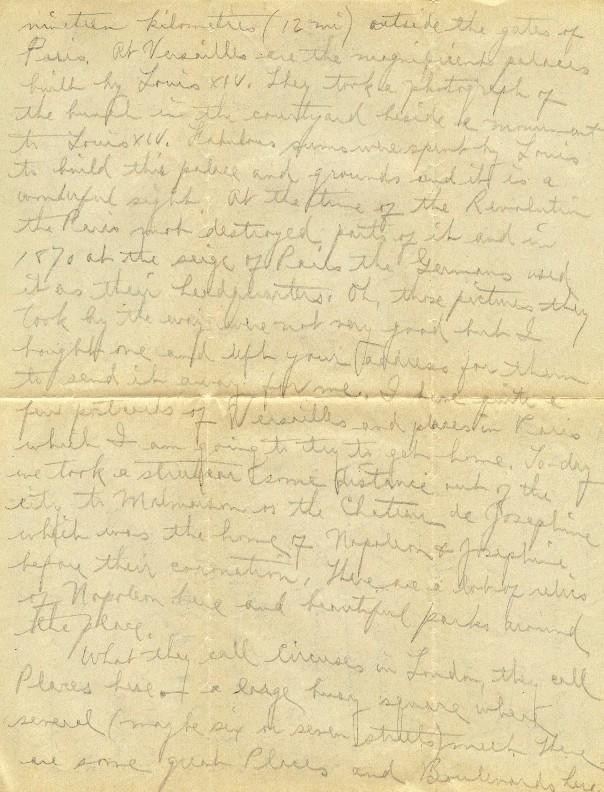 nineteen kilometres (12 mi) outside the gates of
Paris. At Versailles are the magnificent palaces
built by Louis XIV. They took a photograph of
the bunch in the courtyard beside a monument
to Louis XIV. Fabulous sums were spent by Louis
to build this palace and grounds and it is a
wonderful sight. At the time of the Revolution
the Paris mob destroyed parts of it and in
1870 at the seige of Paris the Germans used
it as their headquarters. Oh, those pictures they
took by the way were not very good but I
bought one and left your address for them
to send it away for me. I have quite a
few postcards of Versailles and places in Paris
which I am going to try to get home. To-day
we took a streetcar some distance out of the
city to Malmaison or the Chateau de Josephine
which was the home of Napoleon & Josephine
before their coronation. There are a lot of relics
of Napoleon here and beautiful parks around
the place.
What they call Circuses in London, they call
Places here - a large busy square where
several (maybe six or seven streets) meet. There
are some great Places and Boulevards here.